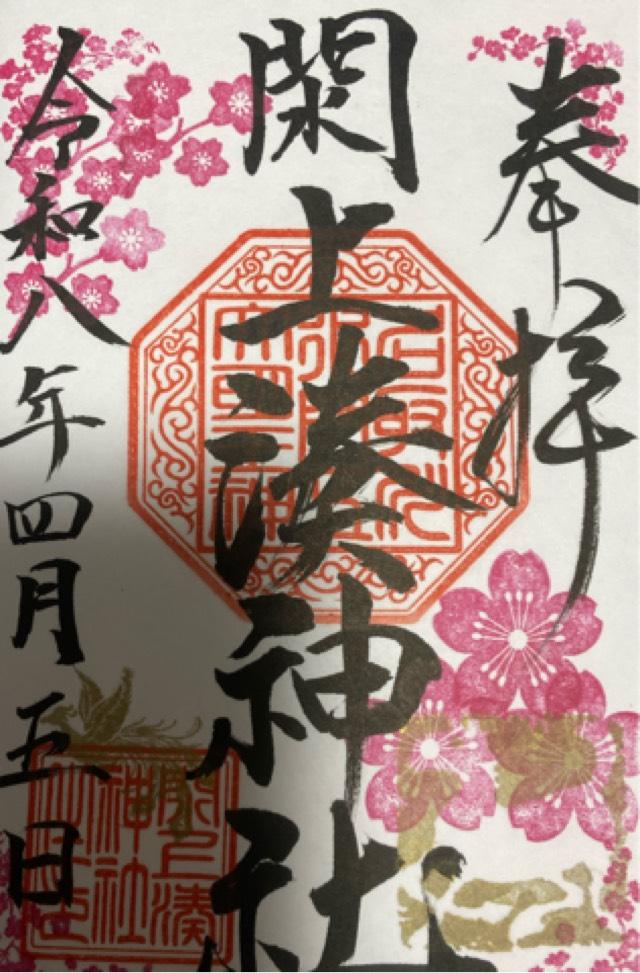 奉拝
閖上湊神社
令和八年四月五日
閖上湊
神社